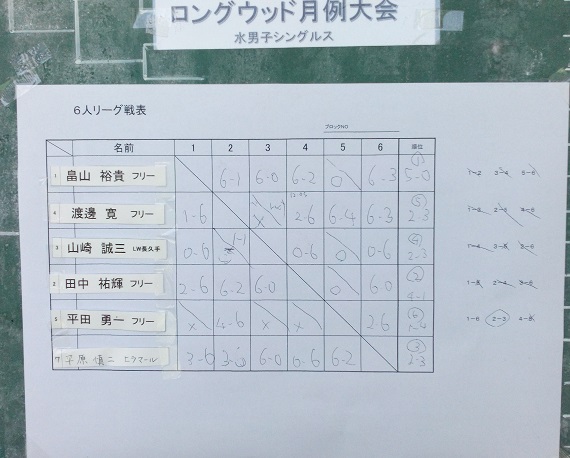 ロングウッド月例大会
水男子シングルス
6人リーグ戦表
ブロックNO
名前 1 2 3 4 5 6 順位
1 畠山 裕貴 フリー 6-1 6-0 6-2 0 6-3 5-0 ①
4 渡邊 寛 フリー 1-6 2-6 6-4 6-3 2-3 ⑤
3 山崎 誠三 LW長久手 0-6 0-6 0 0-6 2-3 ④
2 田中 祐輝 フリー 2-6 6-2 6-0 0 6-0 4-1 ②
5 平田 勇一 フリー × 4-6 × × 2-6 ⑥
平原 慎二 ヒラマール 3-6 6-0 6-2 2-3 ③
1-2 3-4 5-6
1-6 2-3 4-5